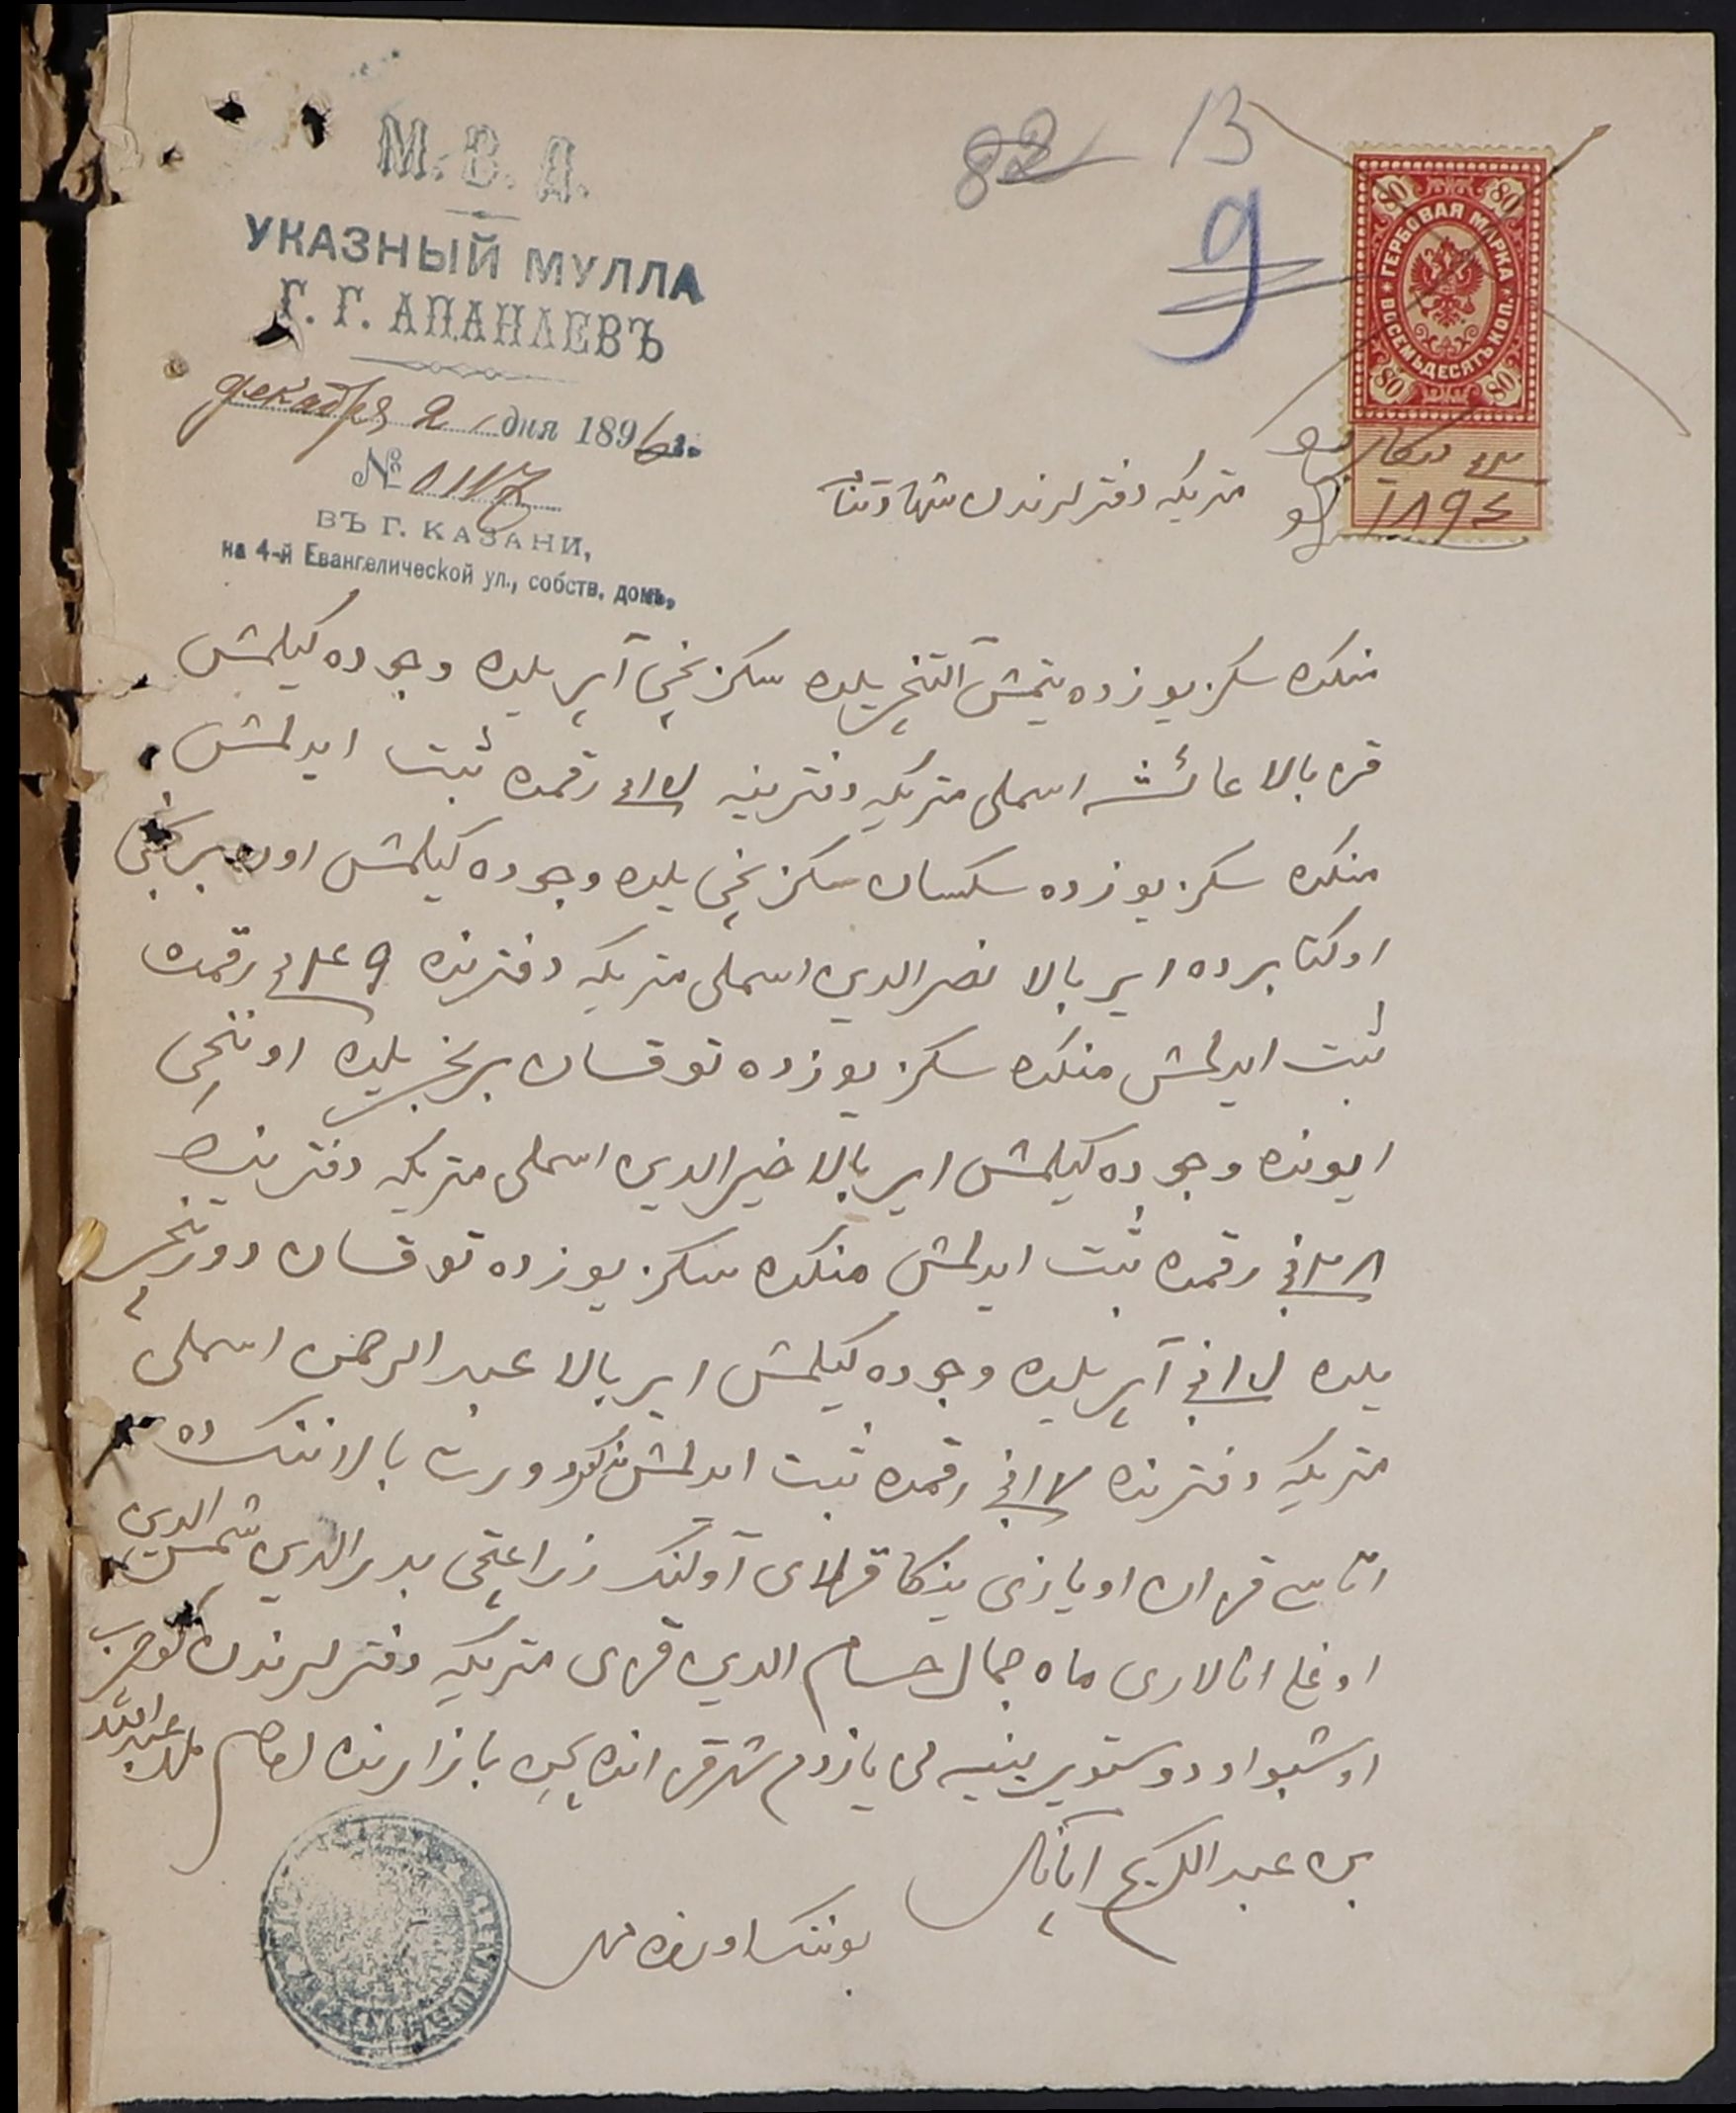 82 13
9
М. В. Д.
УКАЗНЫЙ МУЛЛА
Г. Г. АПАНАЕВЪ
декабря 2 дня 1896 г.
№ 
ВЪ Г. КАЗАНИ,
на 4-й Евангелической ул., собств. домъ,
80 80
ГЕРБОВАЯ МАРКА
ВОСЕМЬДЕСЯТЪ КОП.
80 80
متریکه دفترلرندن شهادتنامه
منکده سکز یوزده یتمش آلتنچی یلده سکزنچی آپریلده وجوده کیلمش
قز بالا عائشه اسملی متریکه دفترینه رقمده ثبت ایدلمش
منکده سکز یوزده سکسان سکزنچی یلده وجوده کیلمش اون برنچی
اوکتابرده ایر بالا نصرالدین اسملی متریکه دفترنده رقمده
ثبت ایدلمش منکده سکز یوزده توقسان برنچی یلده اوننچی
ایونده وجوده کیلمش ایر بالا خیرالدین اسملی متریکه دفترینده
رقمده ثبت ایدلمش منکده سکز یوزده توقسان دورتنچی
یلده آپریلده وجوده کیلمش ایر بالا عبد الرحمن اسملی
متریکه دفترنده رقمده ثبت ایدلمش مذکور دورت بالاننک ده
اتاسی قزان اویازی آولینک زراعتچی بدرالدین شمس الدین
اوغلی انالاری ماه جمال حسام الدین قزی متریکه دفترلرندن کوچرب
اوشبو اودوستویرینیه نی یازدم شهر قزانده پچن بازارنده امام ملا عبد الله
بن عبد الکریم آپانای
بوننک اورنده مهر